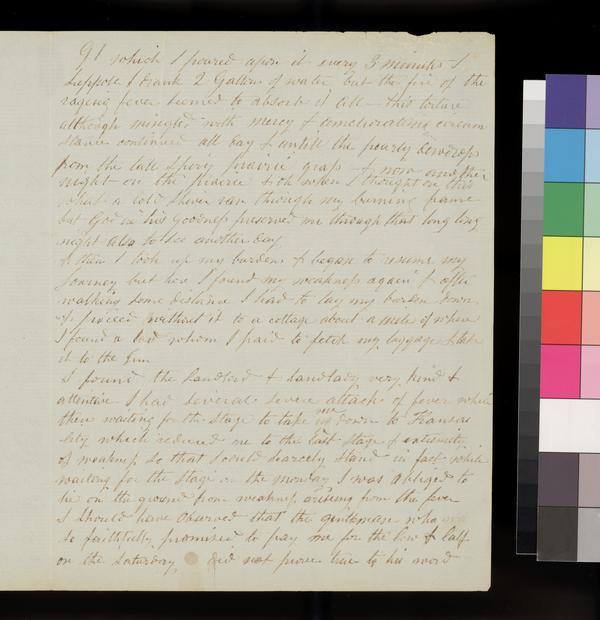 91 which I poured upon it every 3 minutes I
suppose I drank 2 Gallons of water but the fire of the
raging fever seemed to absorb it all – this torture
although mingled with mercy & ameliorating circum
stance continued all day & untill the pearly dewdrops
from the tall spiry prairie grass & now another
night on the prairie & oh when I thought on this
what a cold shiver ran through my burning frame
but God in his goodness preserved me through that long long
night also to see another day
& then I took up my burden & began to resume my
Journey but here I found my weakness again & after
walking some distance I had to lay my burden down
& proceed without it to a cottage about a mile of where
I found a lad whom I paid to fetch my luggage & take
it to the Inn
I found the landlord & landlady very kind &
attentive I had several severe attacks of fever while
there waiting for the stage to take me down to Kansas
City which reduced me to the last stage & extremity
of weakness so that I could scarcely stand in fact while
waiting for the stage on the monday I was obliged to
lie on the ground from weakness arising from the fever
I should have observed that the gentleman who
so faithfully promised to pay me for the cow & calf
on the Saturday did not prove true to his word